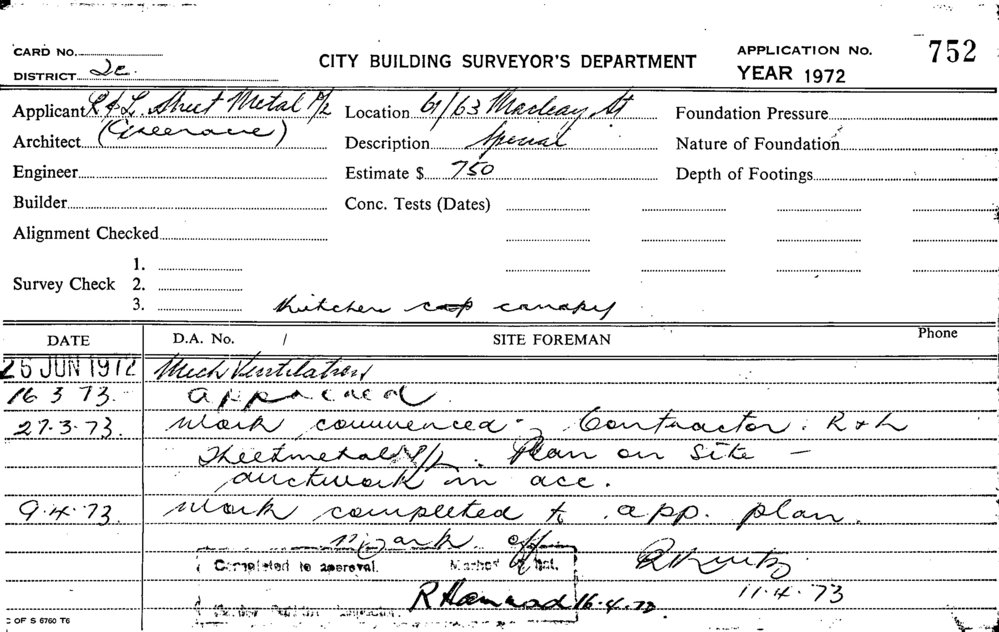 CARD No.
DISTRICT 2c.
CITY BUILDING SURVEYOR'S DEPARTMENT
APPLICATION No. 752
YEAR 1972
Applicant R & L. Sheet Metal P/L
Location 61/63 Macleay St
Foundation Pressure
Architect
Description Special
Nature of Foundation
Engineer
Estimate $ 750
Depth of Footings
Builder
Conc. Tests (Dates)
Alignment Checked
Survey Check
1.
2.
3.
Kitchen canopy
DATE D.A. No. / SITE FOREMAN Phone
26 JUN 1972 Mech Ventilation
16 3 73. approved.
27.3.73. Work commenced - Contractor. R & L
Sheetmetal P/L. Plan on site -
ductwork in acc.
9.4.73. Work completed to app. plan.
Completed to approval. Marked off list.
11.4.73
16.4.73
C OF S 6760 T6